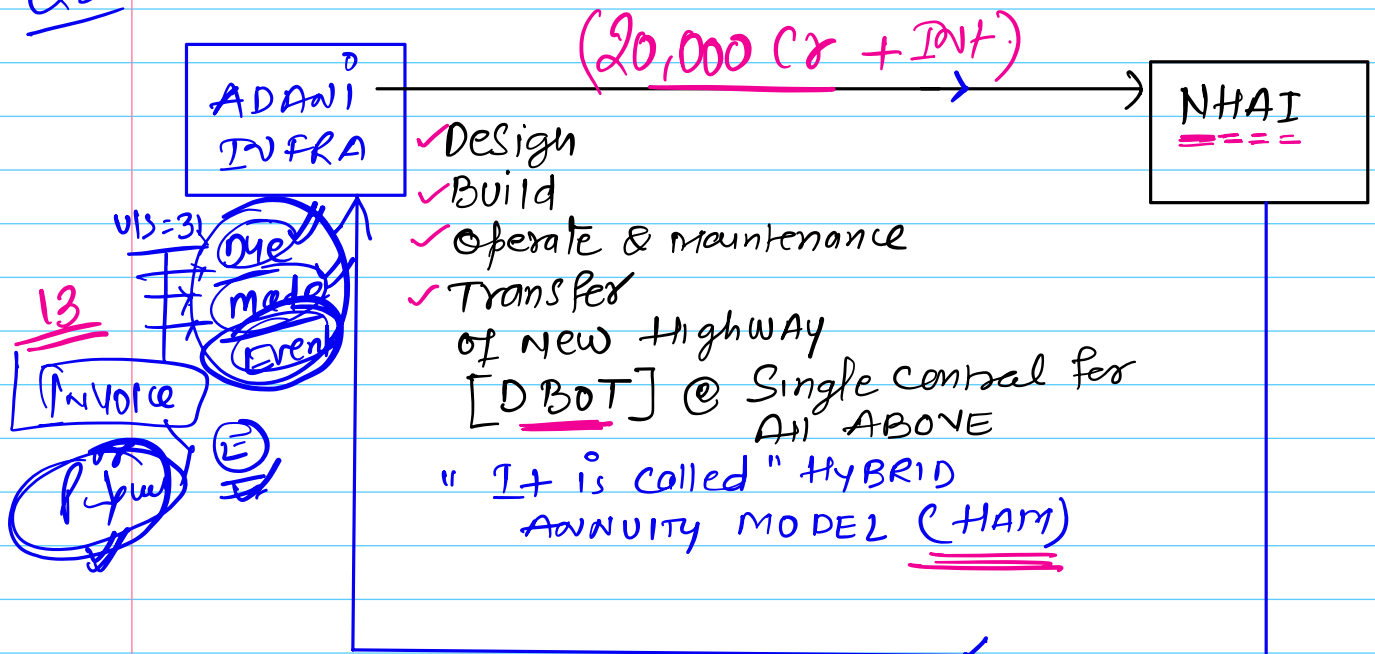 (20,000 Cr + Int)
ADANI
INFRA
NHAI
✓ Design
✓ Build
✓ Operate & Maintenance
✓ Transfer
of New Highway
[DBOT] @ Single Contral for
All ABOVE
" It is called " HYBRID
ANNUITY MODEL (HAM)
U/S=31
Due
made
Event
13
Invoice
or